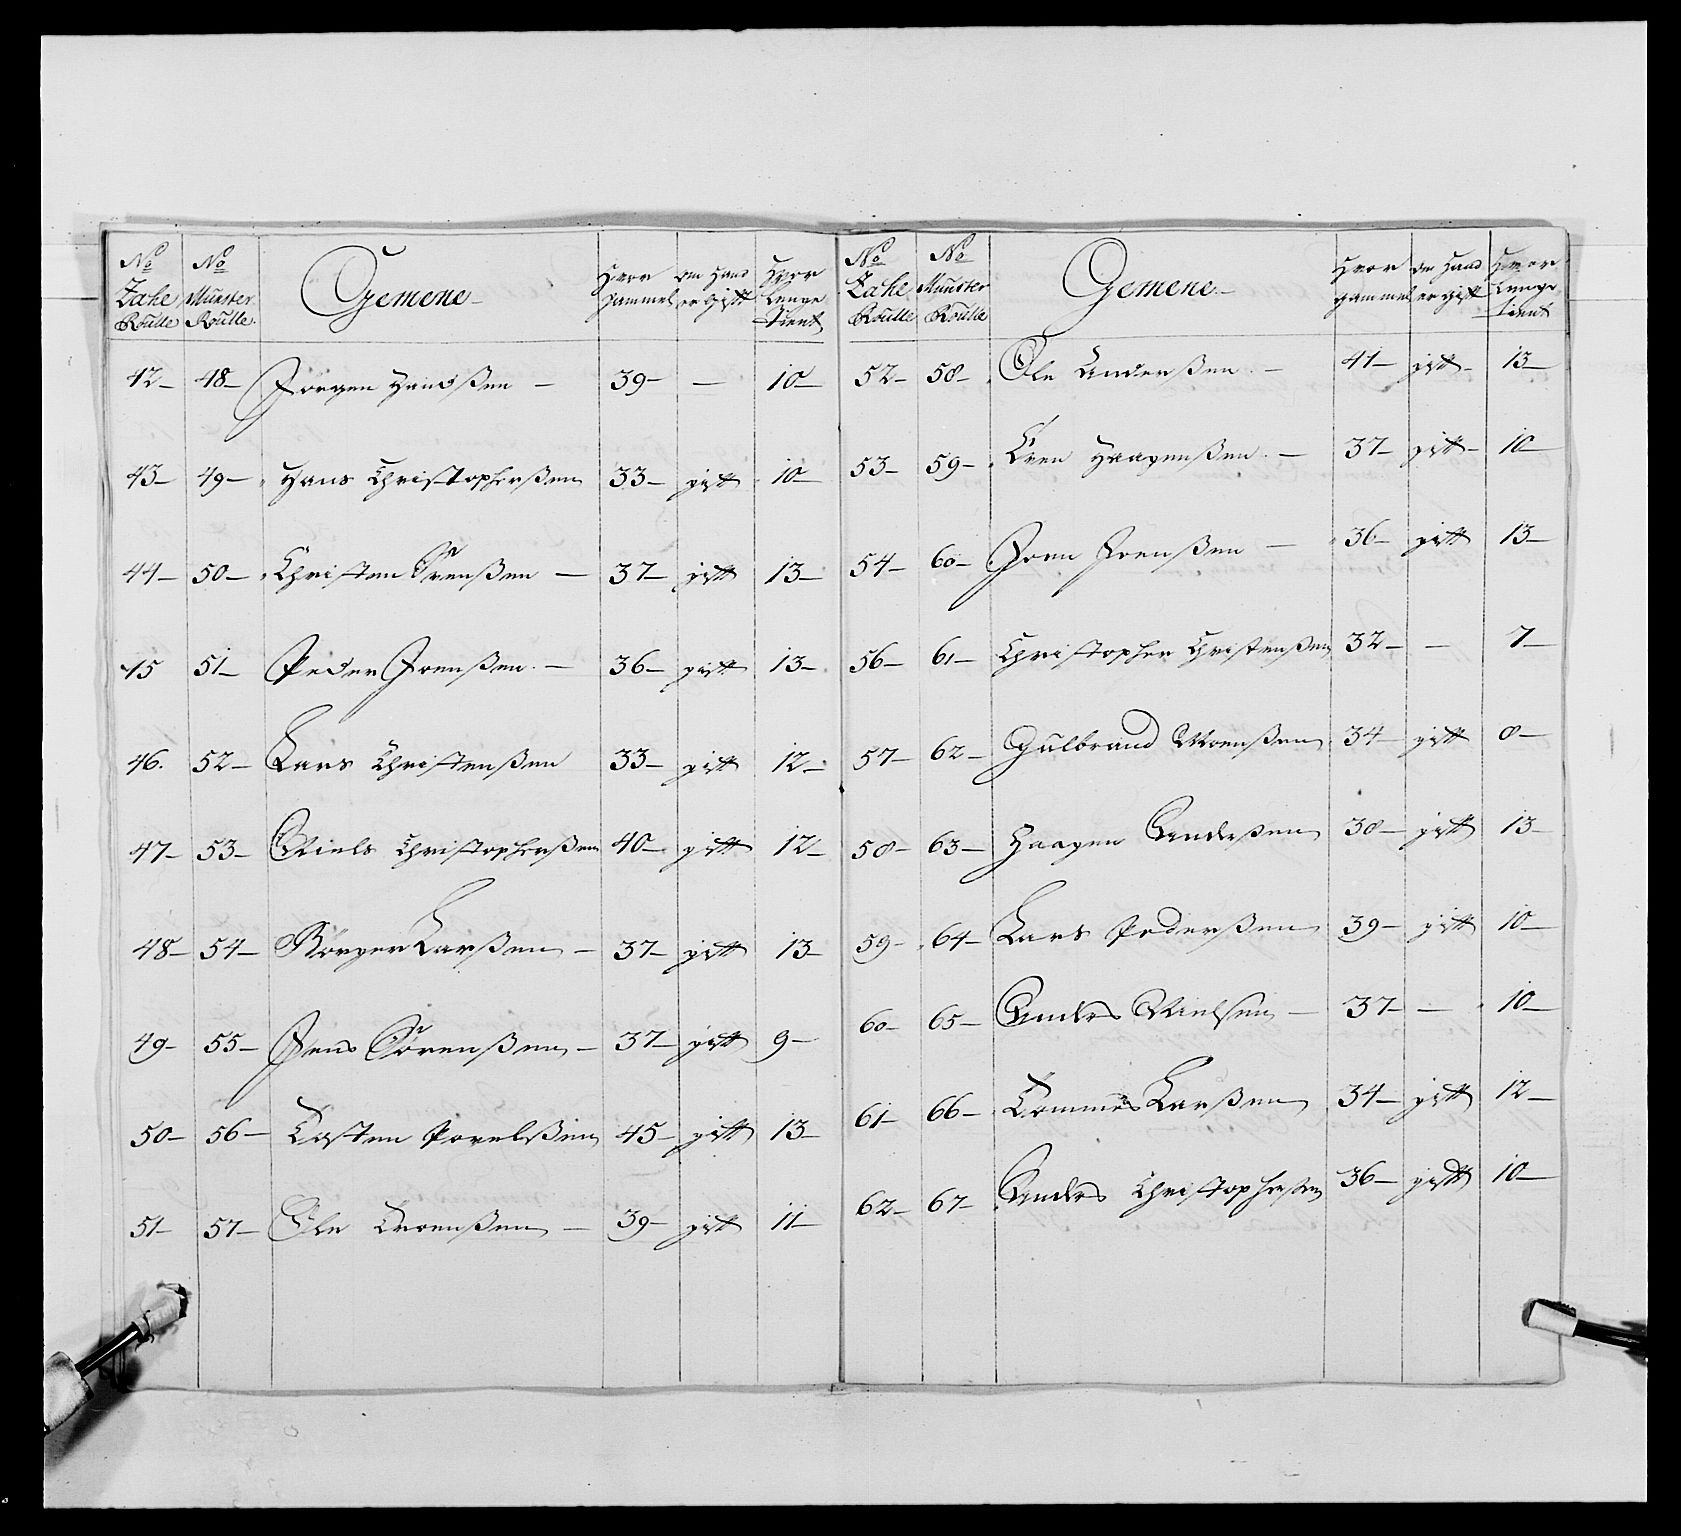 No Zahe Roulle | No Munster Roulle. | Gemene | Hvor gammel | Om Hand er Gift | Hvor Lenge Tient
42 – | 48 – | Jörgen Hansßen – | 39 – | – | 10 –
43 – | 49 – | Hans Christopherßen | 33 – | gift | 10 –
44 – | 50 – | Christen Svenßen – | 37 – | gift | 13 –
45 | 51 – | Peder Joenßen. – | 36 – | gift | 13 –
46. | 52 – | Lars Christenßen | 33 – | gift | 12 –
47 – | 53 – | Niels Christopherßen | 40 – | gift | 12 –
48 – | 54 – | Börger Larßen – | 37 – | gift | 13 –
49 – | 55 – | Jens Sörenßen – | 37 – | gift | 9 –
50 – | 56 – | Tosten Povelßen | 45 – | gift | 13 –
51 – | 57 – | Ole Evenßen – | 39 – | gift | 11 –
No Zahe Roulle | No Munster Roulle | Gemene – | Hvor gammel | Om Hand er gift | Hvor Lenge tient
52 – | 58 – | Ole Anderßen. – | 41 – | gift – | 13 –
53 – | 59 – | Even Haagenßen. – | 37 – | gift – | 10 –
54 – | 60 – | Joen Joenßen – | 36 – | gift | 13 –
56 – | 61 – | Christopher Christenßen | 32 – | – | 7 –
57 – | 62 – | Gulbrand Moenßen | 34 – | gift | 8 –
58 – | 63 – | Haagen Anderßen | 38 – | gift | 13 –
59 – | 64 – | Lars Pederßen | 39 – | gift | 10 –
60 – | 65 – | Anders Nielsen – | 37 – | – | 10 –
61 – | 66 – | Tommes Larßen | 34 – | gift | 12 –
62 – | 67 – | Anders Christopherßen | 36 – | gift | 10 –